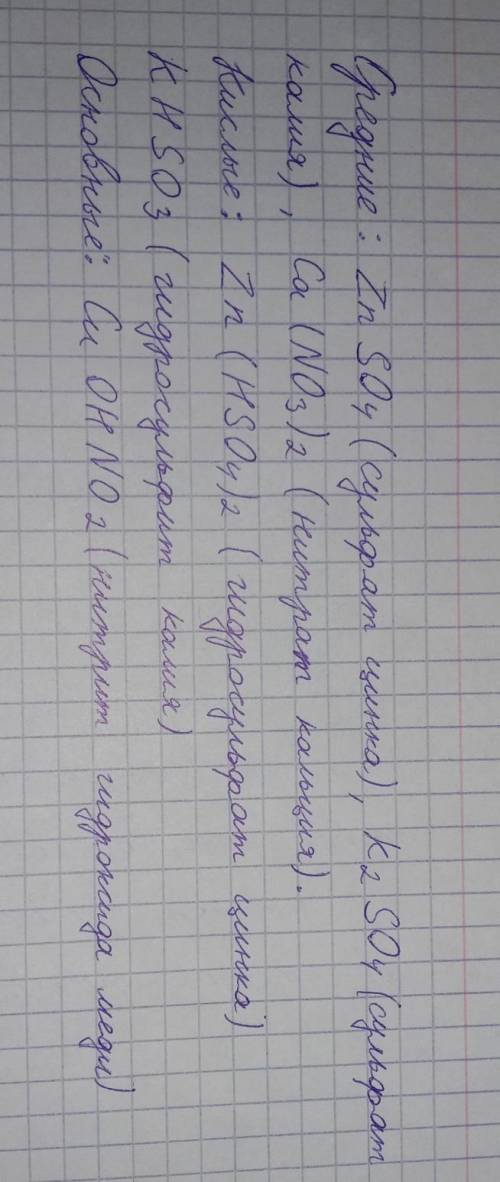 Средние: ZnSO4 (сульфат цинка), K2SO4 (сульфат
калия), Ca(NO3)2 (нитрат кальция).
Кислые: Zn(HSO4)2 (гидросульфат цинка)
KHSO3 (гидросульфит калия)
Основные: CuOHNO2 (нитрит гидроксида меди)